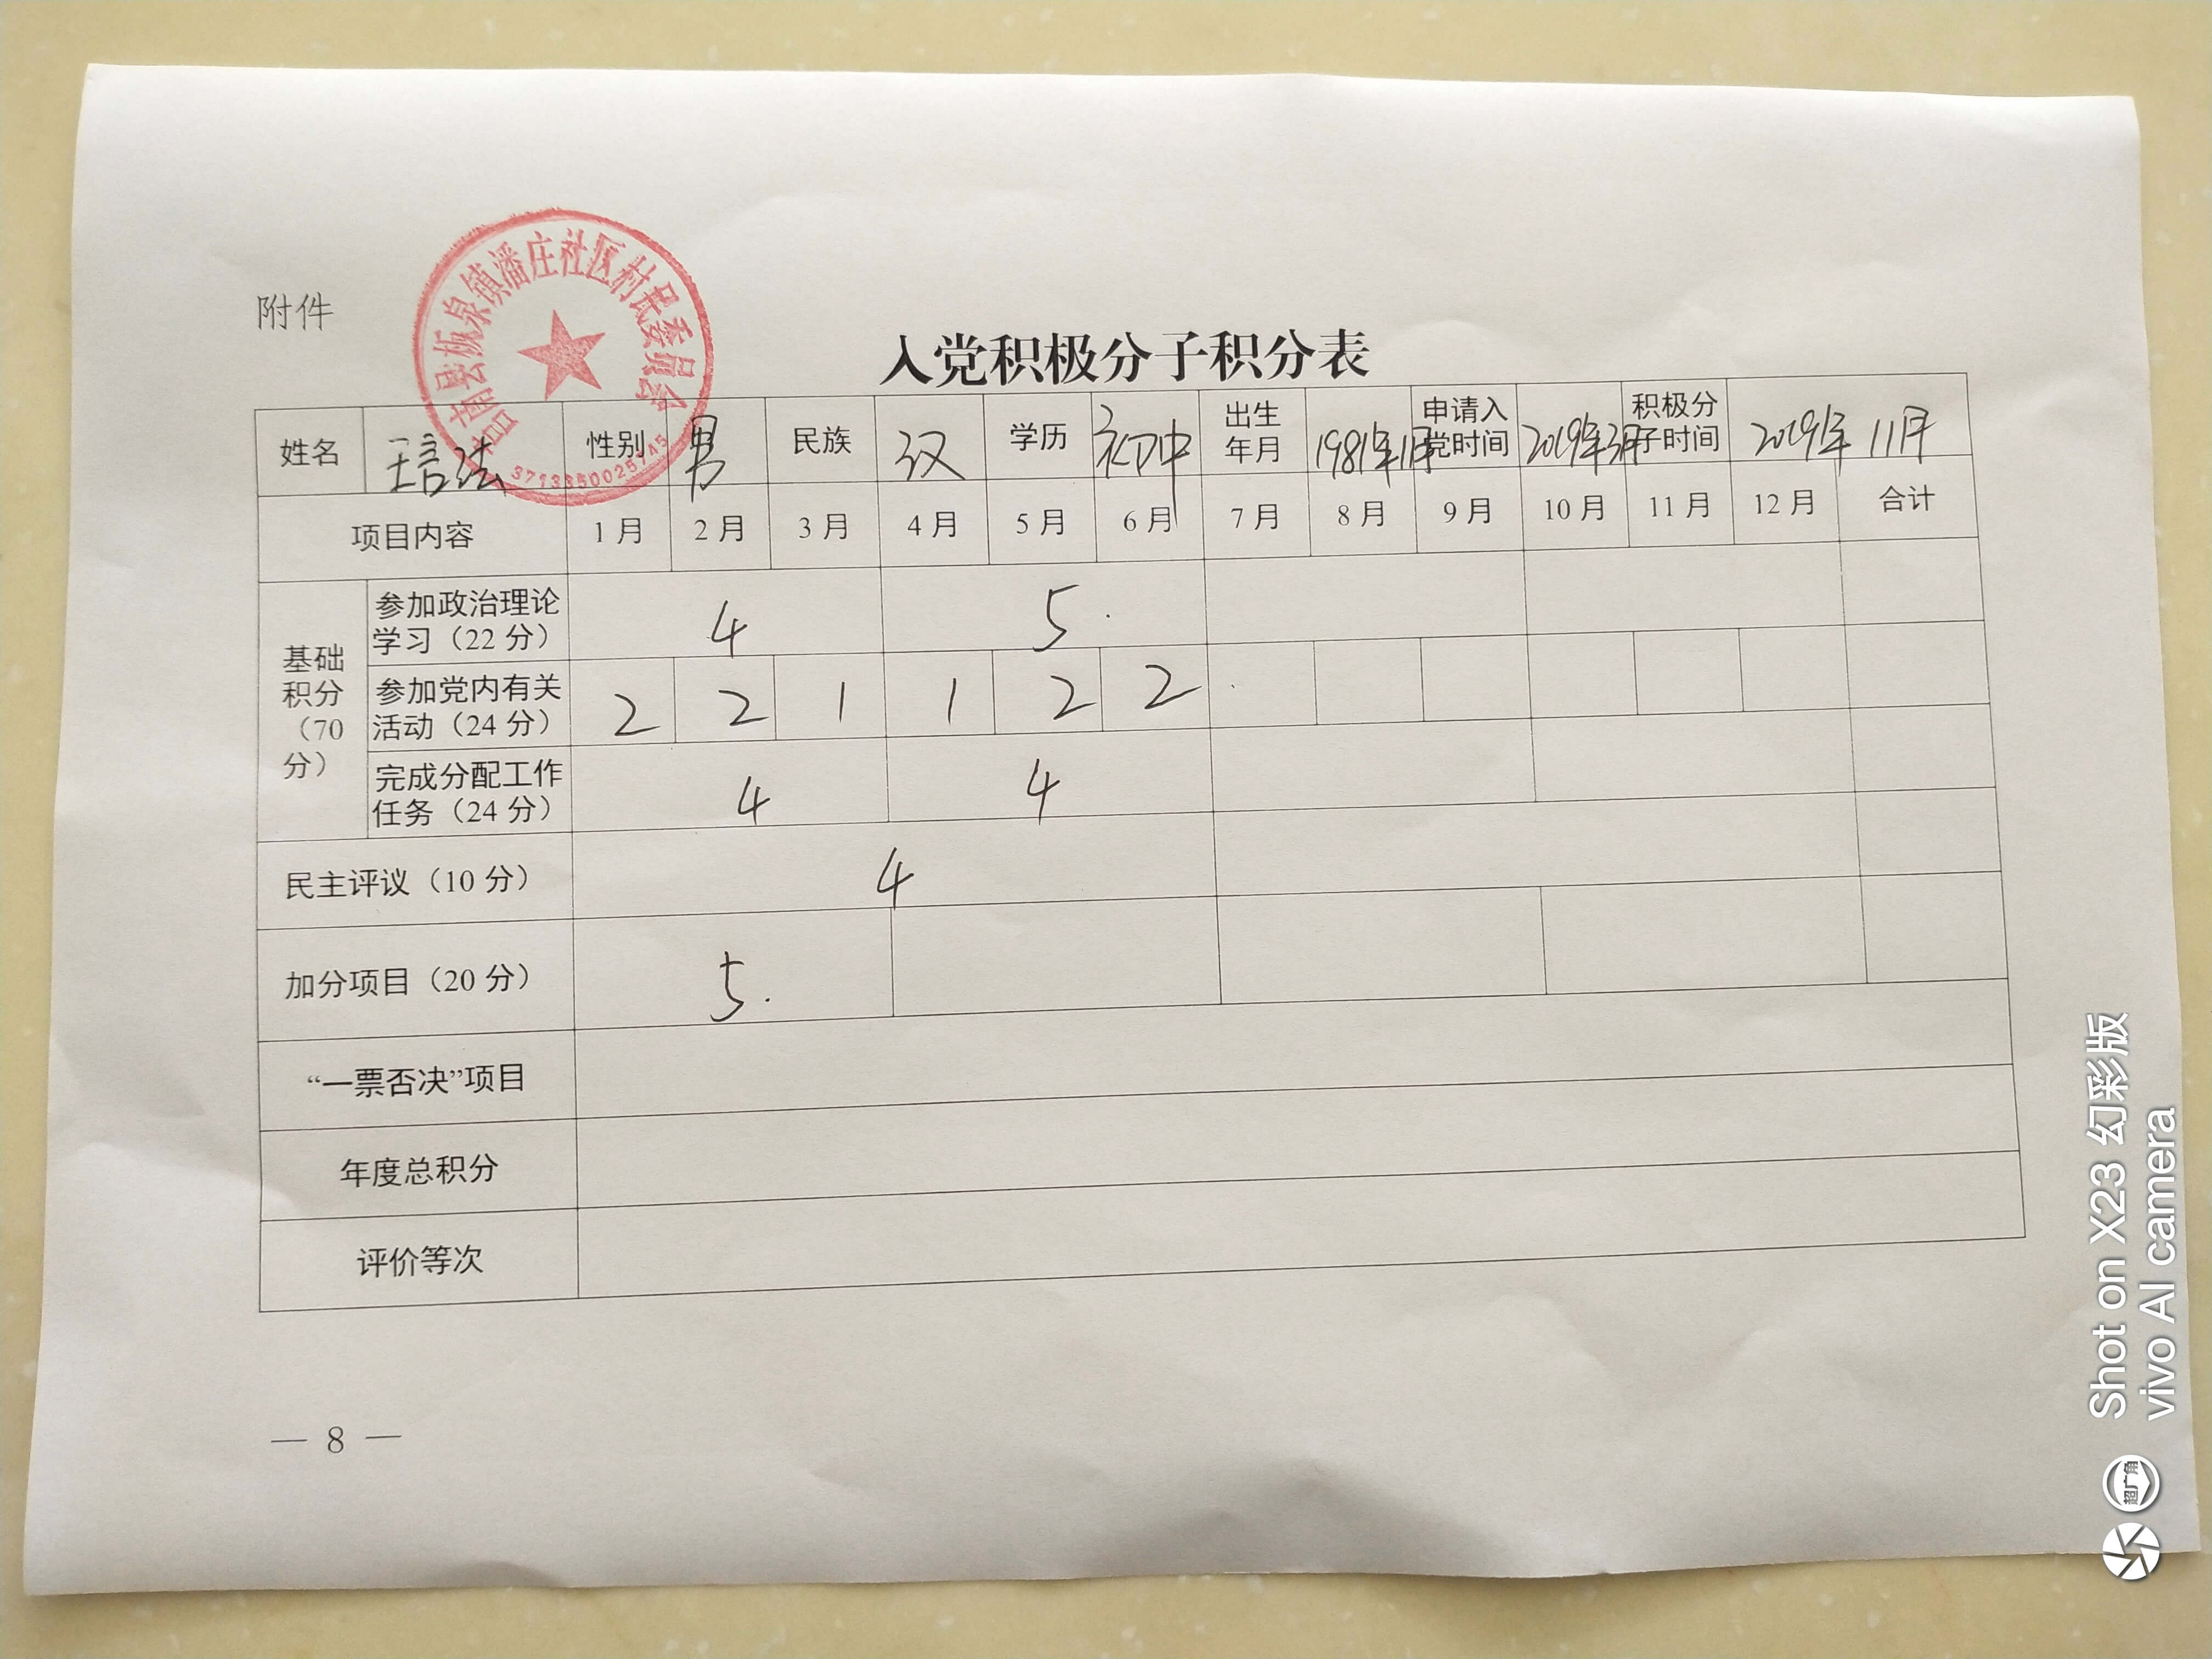 附件
莒南县板泉镇潘庄社区村民委员会
入党积极分子积分表
姓名 王言法 性别 男 民族 汉 学历 初中 出生年月 1981年11月 申请入党时间 2019年3月 积极分子时间 2019年11月
项目内容 1月 2月 3月 4月 5月 6月 7月 8月 9月 10月 11月 12月 合计
基础积分（70分）
参加政治理论学习（22分） 4 5.
参加党内有关活动（24分） 2 2 1 1 2 2
完成分配工作任务（24分） 4 4
民主评议（10分） 4
加分项目（20分） 5.
“一票否决”项目
年度总积分
评价等次
— 8 —
Shot on X23 幻彩版
vivo AI camera
超广角